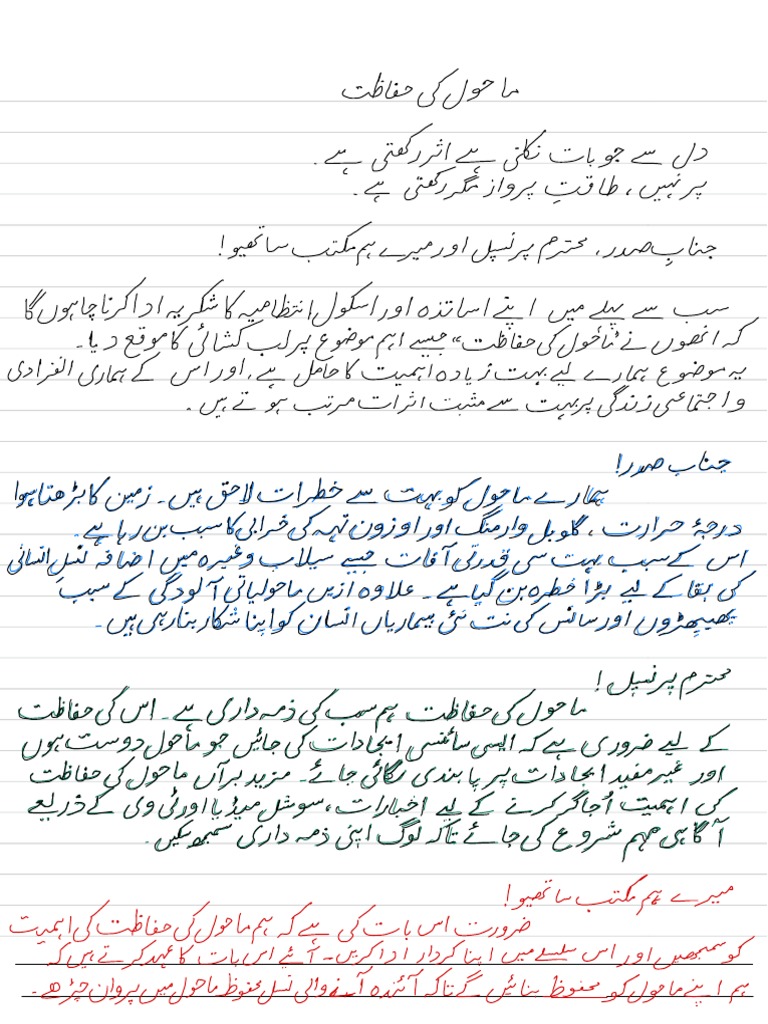 ماحول کی حفاظت
دل سے جو بات نکلتی ہے اثر رکھتی ہے۔
پر نہیں، طاقتِ پرواز مگر رکھتی ہے۔
جنابِ صدر، محترم پرنسپل اور میرے ہم مکتب ساتھیو!
سب سے پہلے میں اپنے اساتذہ اور اسکول انتظامیہ کا شکریہ ادا کرنا چاہوں گا
کہ انھوں نے "ماحول کی حفاظت" جیسے اہم موضوع پر لب کشائی کا موقع دیا۔
یہ موضوع ہمارے لیے بہت زیادہ اہمیت کا حامل ہے، اور اس کے ہماری انفرادی
و اجتماعی زندگی پر بہت سے مثبت اثرات مرتب ہوتے ہیں۔
جناب صدر!
ہمارے ماحول کو بہت سے خطرات لاحق ہیں۔ زمین کا بڑھتا ہوا
درجۂ حرارت، گلوبل وارمنگ اور اوزون تہہ کی خرابی کا سبب بن رہا ہے۔
اس کے سبب بہت سی قدرتی آفات جیسے سیلاب وغیرہ میں اضافہ نسلِ انسانی
کی بقا کے لیے بڑا خطرہ بن گیا ہے۔ علاوہ ازیں ماحولیاتی آلودگی کے سبب
پھیپھڑوں اور سانس کی نت نئی بیماریاں انسان کو اپنا شکار بنا رہی ہیں۔
محترم پرنسپل!
ماحول کی حفاظت ہم سب کی ذمہ داری ہے۔ اس کی حفاظت
کے لیے ضروری ہے کہ ایسی سائنسی ایجادات کی جائیں جو ماحول دوست ہوں
اور غیر مفید ایجادات پر پابندی لگائی جائے۔ مزید برآں ماحول کی حفاظت
کی اہمیت اُجاگر کرنے کے لیے اخبارات، سوشل میڈیا اور ٹی وی کے ذریعے
آگاہی مہم شروع کی جائے تاکہ لوگ اپنی ذمہ داری سمجھ سکیں۔
میرے ہم مکتب ساتھیو!
ضرورت اس بات کی ہے کہ ہم ماحول کی حفاظت کی اہمیت
کو سمجھیں اور اس سلسلے میں اپنا کردار ادا کریں۔ آئیے اس بات کا عہد کرتے ہیں کہ
ہم اپنے ماحول کو محفوظ بنائیں گے تاکہ آئندہ آنے والی نسل محفوظ ماحول میں پروان چڑھے۔